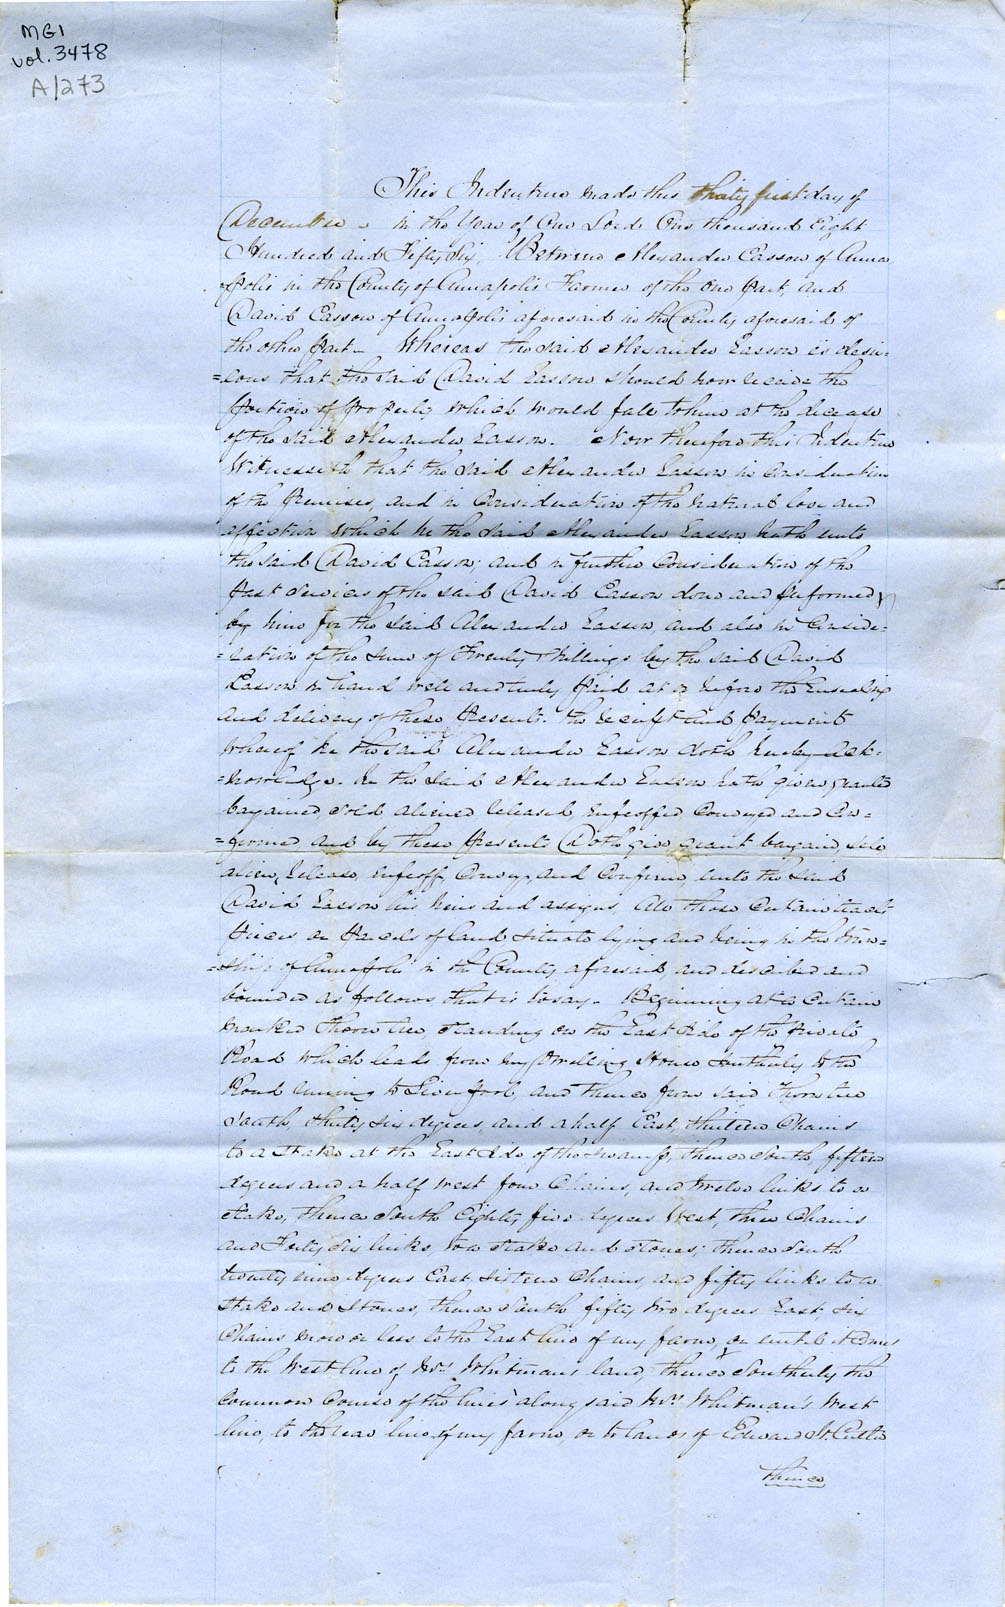 MG1
vol. 3478
A/273
This Indenture made this thirty first day of
December - in the Year of Our Lord One thousand Eight
Hundred and Fifty Six, Between Alexander Easson of Anna
=polis in the County of Annapolis Farmer of the One part, and
David Easson of Annapolis aforesaid in the County aforesaid of
the other part - Whereas the said Alexander Easson is desir=
=ous that the said David Easson should now receive the
portion of property which would fall to him at the decease
of the said Alexander Easson. Now therefore this Indenture
Witnesseth that the said Alexander Easson in Consideration
of the premises, and in Consideration of the natural love and
affection which he the said Alexander Easson hath unto
the said David Easson; and in further Consideration of the
past services of the said David Easson done and performed
by him for the said Alexander Easson, and also in Conside=
=ration of the sum of Twenty Shillings by the said David
Easson in hand well and truly paid at or before the Ensealing
and delivery of these presents. the receipt and payment
whereof he the said Alexander Easson doth hereby ack=
=nowledge. he the said Alexander Easson hath given granted
bargained sold aliened released enfeoffed Conveyed and Con=
=firmed and by these presents Doth give, grant bargain, sell
alien, release, enfeoff, Convey, and Confirm, unto the said
David Easson his heirs and assigns, All those Certain tracts
pieces or parcels of land situate lying and being in the Town=
=ship of Annapolis in the County aforesaid and described and
bounded as follows that is to say. Beginning at a Certain
marked Thorn tree, standing on the East side of the private
Road which leads from my Dwelling House Southerly to the
Road running to Liverpool, and thence from said Thorn tree
South, thirty six degrees, and a half East, thirteen Chains
to a stake at the East side of the swamp, thence South, fifteen
degrees and a half West four Chains, and twelve links to a
stake, thence South Eighty five degrees West, three Chains
and Forty six links, to a stake and stones; thence South
twenty nine degrees East sixteen Chains, and fifty links to a
stake and Stones, thence South fifty two degrees East, six
Chains more or less to the East line of my farm, or until it comes
to the West line of Mrs Whitman's land, thence Southerly the
Common Course of the lines along said Mrs Whitman's West
line, to the rear line of my farm, or to lands of Edward H. Cutler
thence